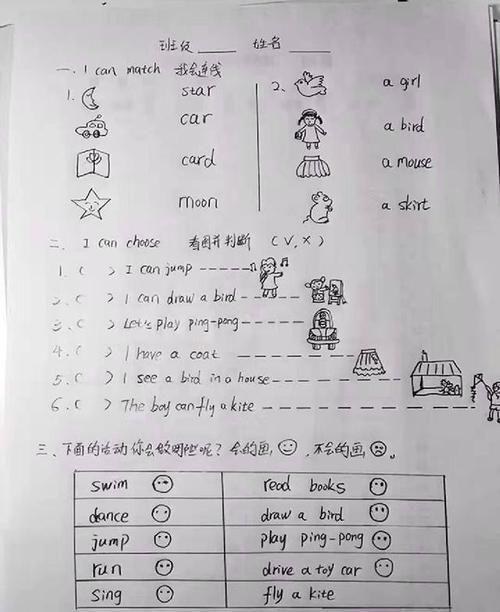 班级____ 姓名____
一、I can match 我会连线
1. star
car
card
moon
2、 a girl
a bird
a mouse
a skirt
二、I can choose 看图并判断 (√,×)
1.( ) I can jump
2.( ) I can draw a bird
3.( ) Let's play ping-pong
4.( ) I have a coat
5.( ) I see a bird in a house
6.( ) The boy can fly a kite
三、下面的活动你会做哪些呢?会的画, 不会的画。
swim read books
dance draw a bird
jump play ping-pong
run drive a toy car
sing fly a kite